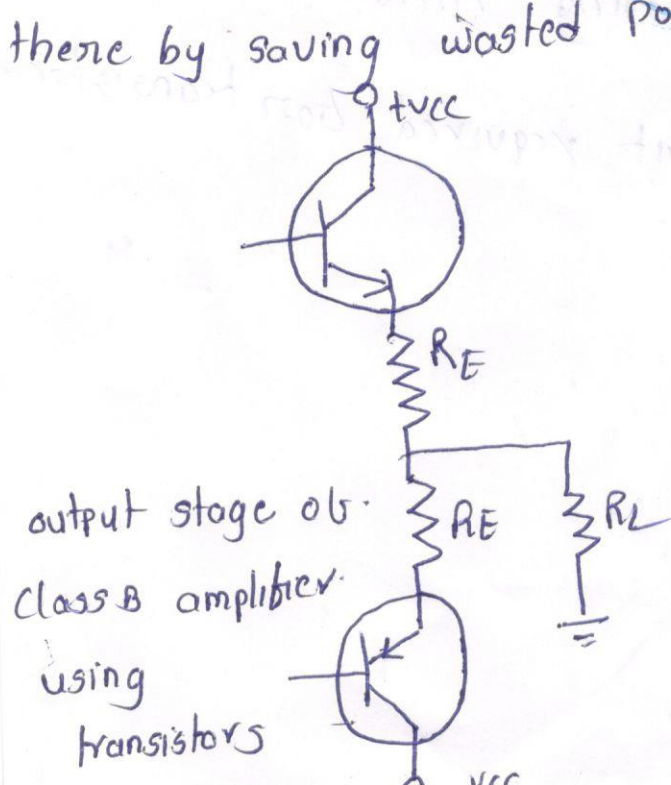 there by saving wasted po
+vcc
RE
output stage ob.
RE
RL
class B amplibier.
using
transistors
vcc